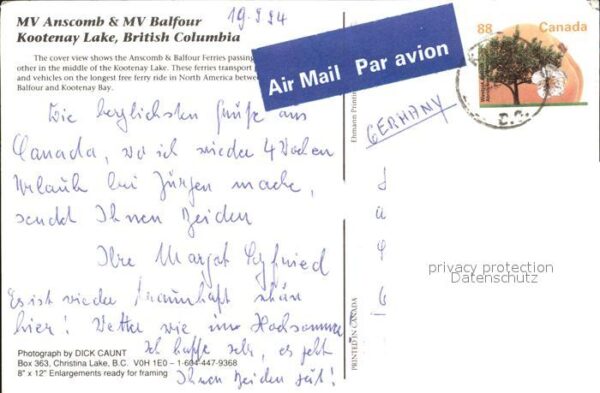 MV Anscomb & MV Balfour
Kootenay Lake, British Columbia
19.9.94
The cover view shows the Anscomb & Balfour Ferries passing
other in the middle of the Kootenay Lake. These ferries transport
and vehicles on the longest free ferry ride in North America between
Balfour and Kootenay Bay.
Air Mail Par avion
88 Canada
GERMANY
Die herzlichsten Grüße aus
Canada, wo ich wieder 4 Wochen
Urlaub bei Jürgen mache,
sendet Ihnen Beiden
Ihre Margot
Es ist wieder traumhaft schön
hier! Wetter wie im Hochsommer
Ich hoffe sehr, es geht
Ihnen Beiden gut!
Photograph by DICK CAUNT
Box 363, Christina Lake, B.C. V0H 1E0 – 1-604-447-9368
8" x 12" Enlargements ready for framing
PRINTED IN CANADA
Ehmann Printin
privacy protection
Datenschutz